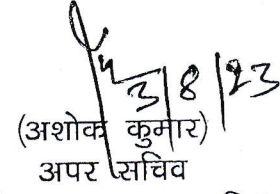 3/8/23
(अशोक कुमार)
अपर सचिव